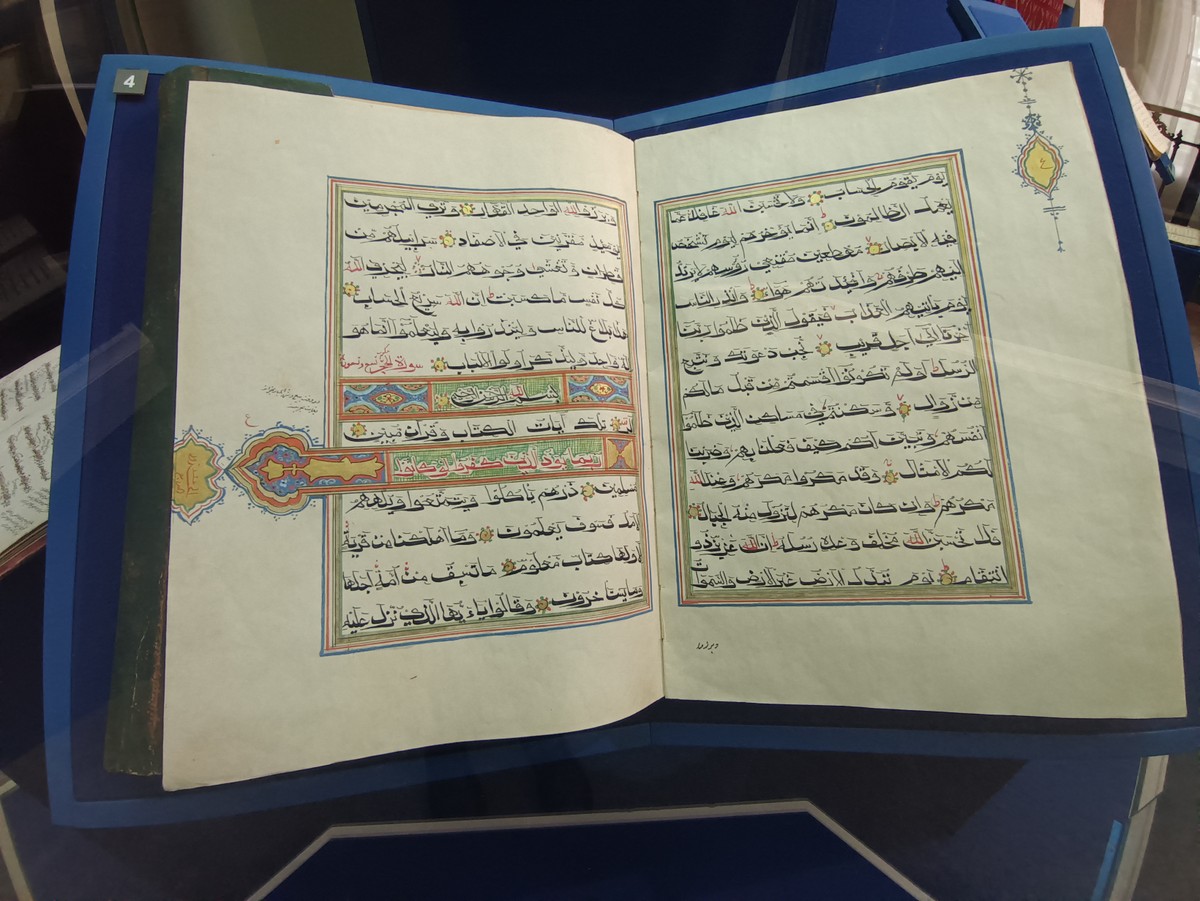 4
٤
يوم يقوم الحساب ولا تحسبن الله غافلا عما
يعمل الظالمون انما يؤخرهم ليوم تشخص
فيه الابصار مهطعين مقنعي رؤسهم لا يرتد
اليهم طرفهم وافئدتهم هواء وانذر الناس
يوم ياتيهم العذاب فيقول الذين ظلموا ربنا
اخرنا الى اجل قريب نجب دعوتك ونتبع
الرسل اولم تكونوا اقسمتم من قبل مالكم
من زوال وسكنتم في مساكن الذين ظلموا
انفسهم وتبين لكم كيف فعلنا بهم وضربنا
لكم الامثال وقد مكروا مكرهم وعند الله
مكرهم وان كان مكرهم لتزول منه الجبال
فلا تحسبن الله مخلف وعده رسله ان الله عزيز ذو
انتقام يوم تبدل الارض غير الارض والسموات
وبرزوا
وبرزوا لله الواحد القهار وترى المجرمين
يومئذ مقرنين في الاصفاد سرابيلهم من
قطران وتغشى وجوههم النار ليجزي الله
كل نفس ما كسبت ان الله سريع الحساب
هذا بلاغ للناس ولينذروا به وليعلموا انما هو
اله واحد وليذكر اولوا الالباب سورة الحجر تسع وتسعون
بسم الله الرحمن الرحيم
الر تلك آيات الكتاب وقران مبين
ربما يود الذين كفروا لو كانوا
مسلمين ذرهم ياكلوا ويتمتعوا ويلههم
الامل فسوف يعلمون وما اهلكنا من قرية
الا ولها كتاب معلوم ما تسبق من امة اجلها
وما يستاخرون وقالوا يا ايها الذي نزل عليه